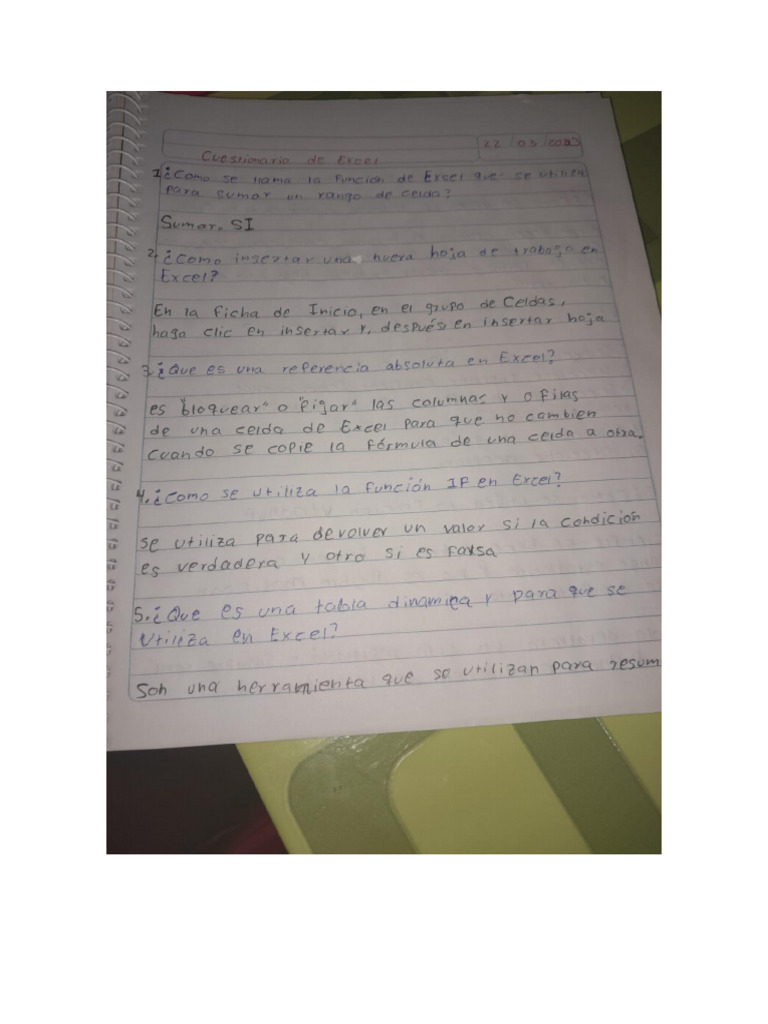 22/03/2023
Cuestionario de Excel
1. ¿Como se llama la función de Excel que se utiliza
para sumar un rango de celda?
Sumar. SI
2. ¿Como insertar una nueva hoja de trabajo en
Excel?
En la ficha de Inicio, en el grupo de Celdas,
haga clic en insertar y, después en insertar hoja
3. ¿Que es una referencia absoluta en Excel?
es "bloquear" o "fijar" las columnas y o filas
de una celda de Excel para que no cambien
cuando se copie la fórmula de una celda a otra.
4. ¿Como se utiliza la función IF en Excel?
se utiliza para devolver un valor si la condición
es verdadera y otro si es falsa
5. ¿Que es una tabla dinamica y para que se
utiliza en Excel?
Son una herramienta que se utilizan para resum